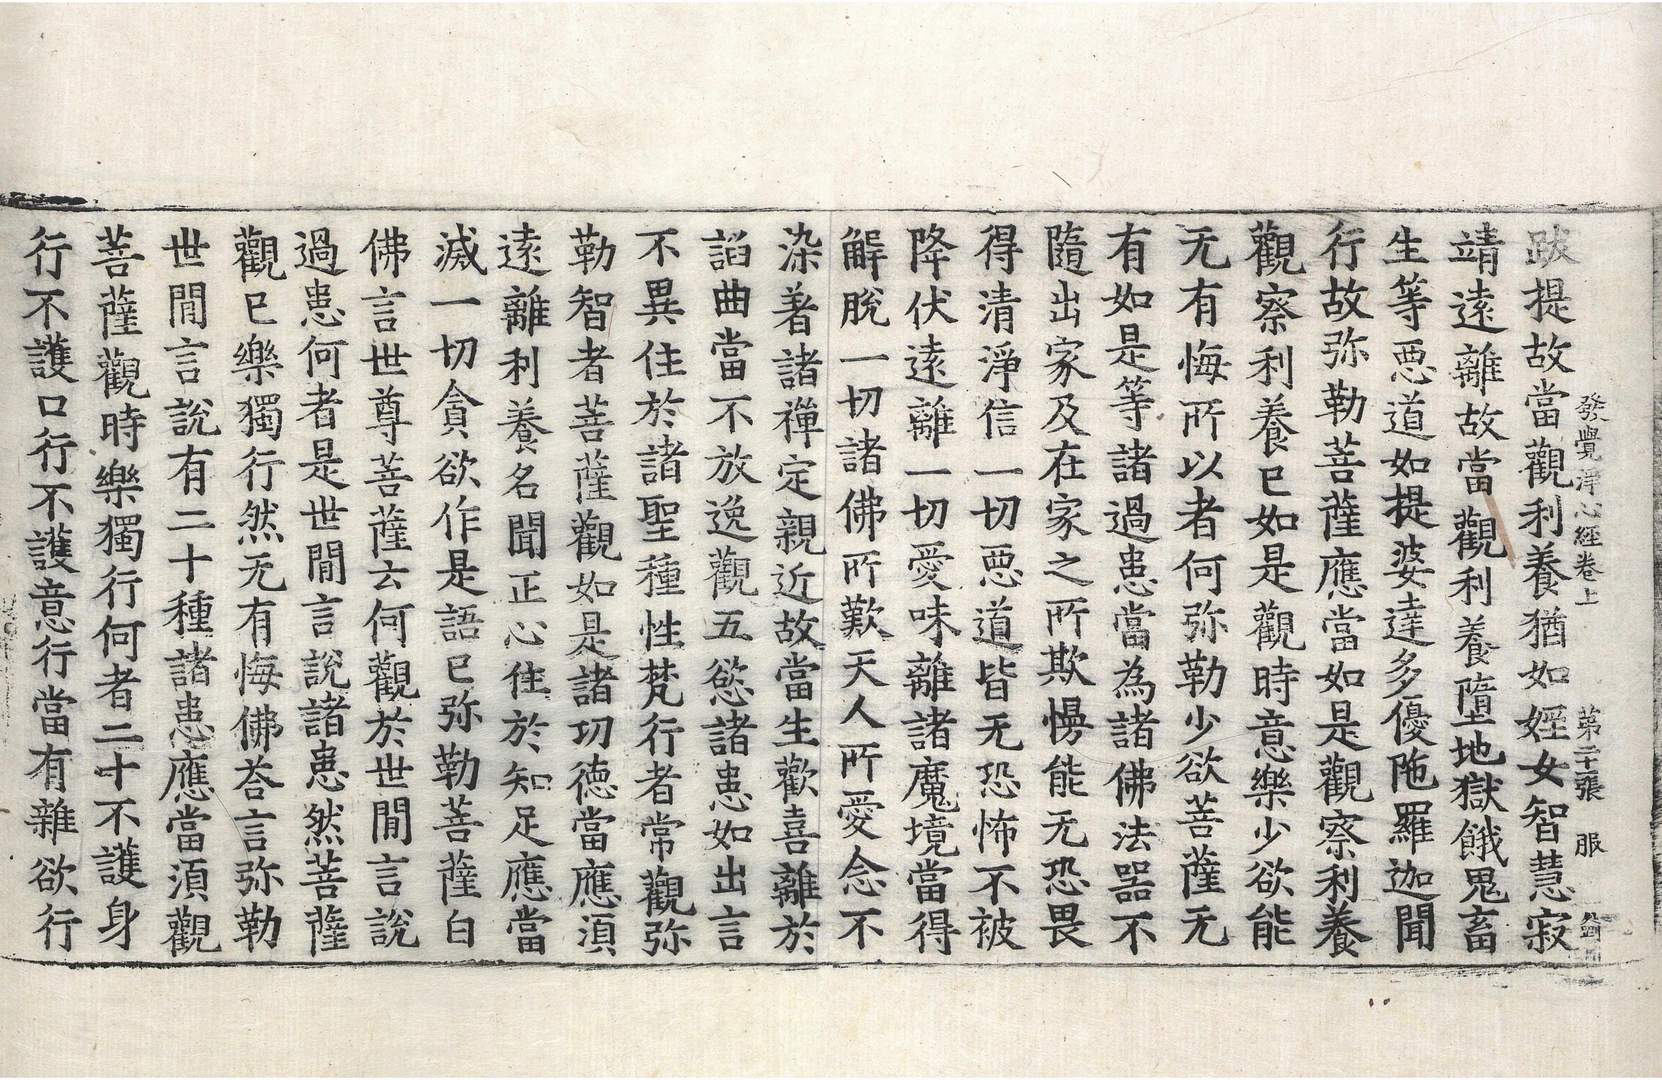 發覺淨心經卷上 第二十張 服
跋提故當觀利養猶如婬女智慧寂
靖遠離故當觀利養墮地獄餓鬼畜
生等惡道如提婆達多優陁羅迦聞
行故弥勒菩薩應當如是觀察利養
觀察利養已如是觀時意樂少欲能
无有悔所以者何弥勒少欲菩薩无
有如是等諸過患當為諸佛法器不
隨出家及在家之所欺慢能无恐畏
得清淨信一切惡道皆无恐怖不被
降伏遠離一切愛味離諸魔境當得
解脫一切諸佛所歎天人所愛念不
染著諸禪定親近故當生歡喜離於
諂曲當不放逸觀五慾諸患如出言
不異住於諸聖種性梵行者常觀弥
勒智者菩薩觀如是諸功德當應須
遠離利養名聞正心住於知足應當
滅一切貪欲作是語已弥勒菩薩白
佛言世尊菩薩云何觀於世閒言說
過患何者是世閒言說諸患然菩薩
觀已樂獨行然无有悔佛荅言弥勒
世閒言說有二十種諸患應當須觀
菩薩觀時樂獨行何者二十不護身
行不護口行不護意行當有雜欲行